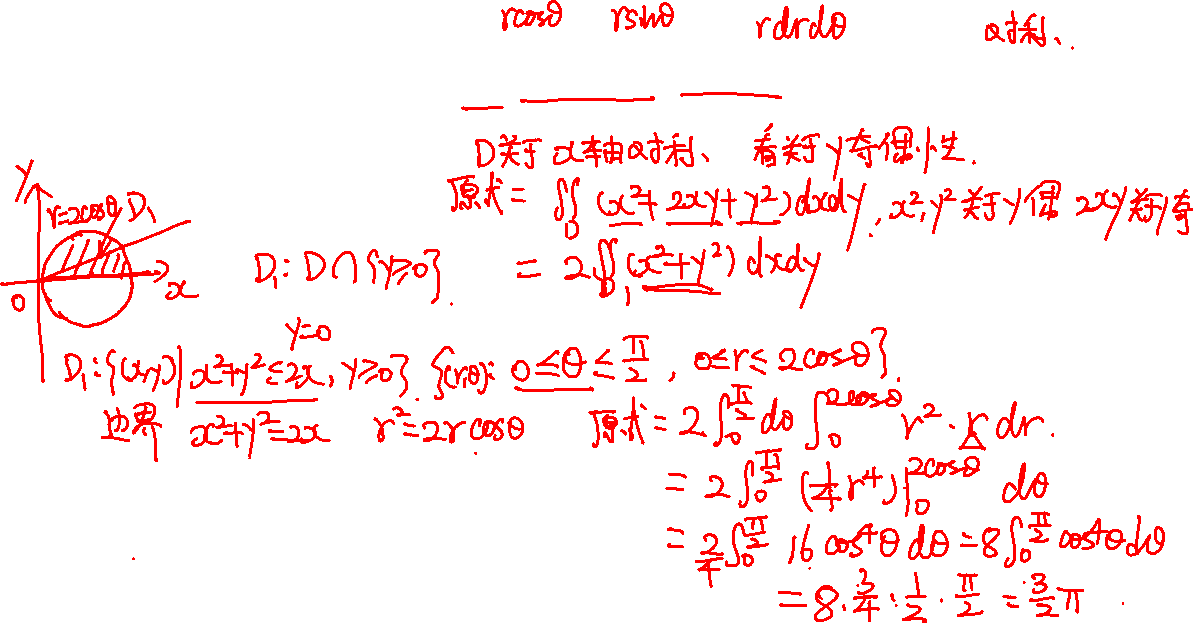 rcosθ rsinθ rdrdθ 对称、
D关于x轴对称、看关于y奇偶性.
原式 = ∬_D (x²+2xy+y²)dxdy, x²,y²关于y偶 2xy关于y奇
y r=2cosθ D₁
0 x
D₁: D∩{y≥0}. = 2∬_{D₁}(x²+y²)dxdy
y=0
D₁:{(x,y)|x²+y²≤2x, y≥0}. {(r,θ): 0≤θ≤π/2, 0≤r≤2cosθ}.
边界 x²+y²=2x r²=2r cosθ 原式=2∫_0^{π/2}dθ∫_0^{2cosθ} r²·r dr.
=2∫_0^{π/2}(1/4 r⁴)|_0^{2cosθ} dθ
=2/4∫_0^{π/2} 16 cos⁴θ dθ=8∫_0^{π/2}cos⁴θdθ
=8·3/4·1/2·π/2=3/2π.